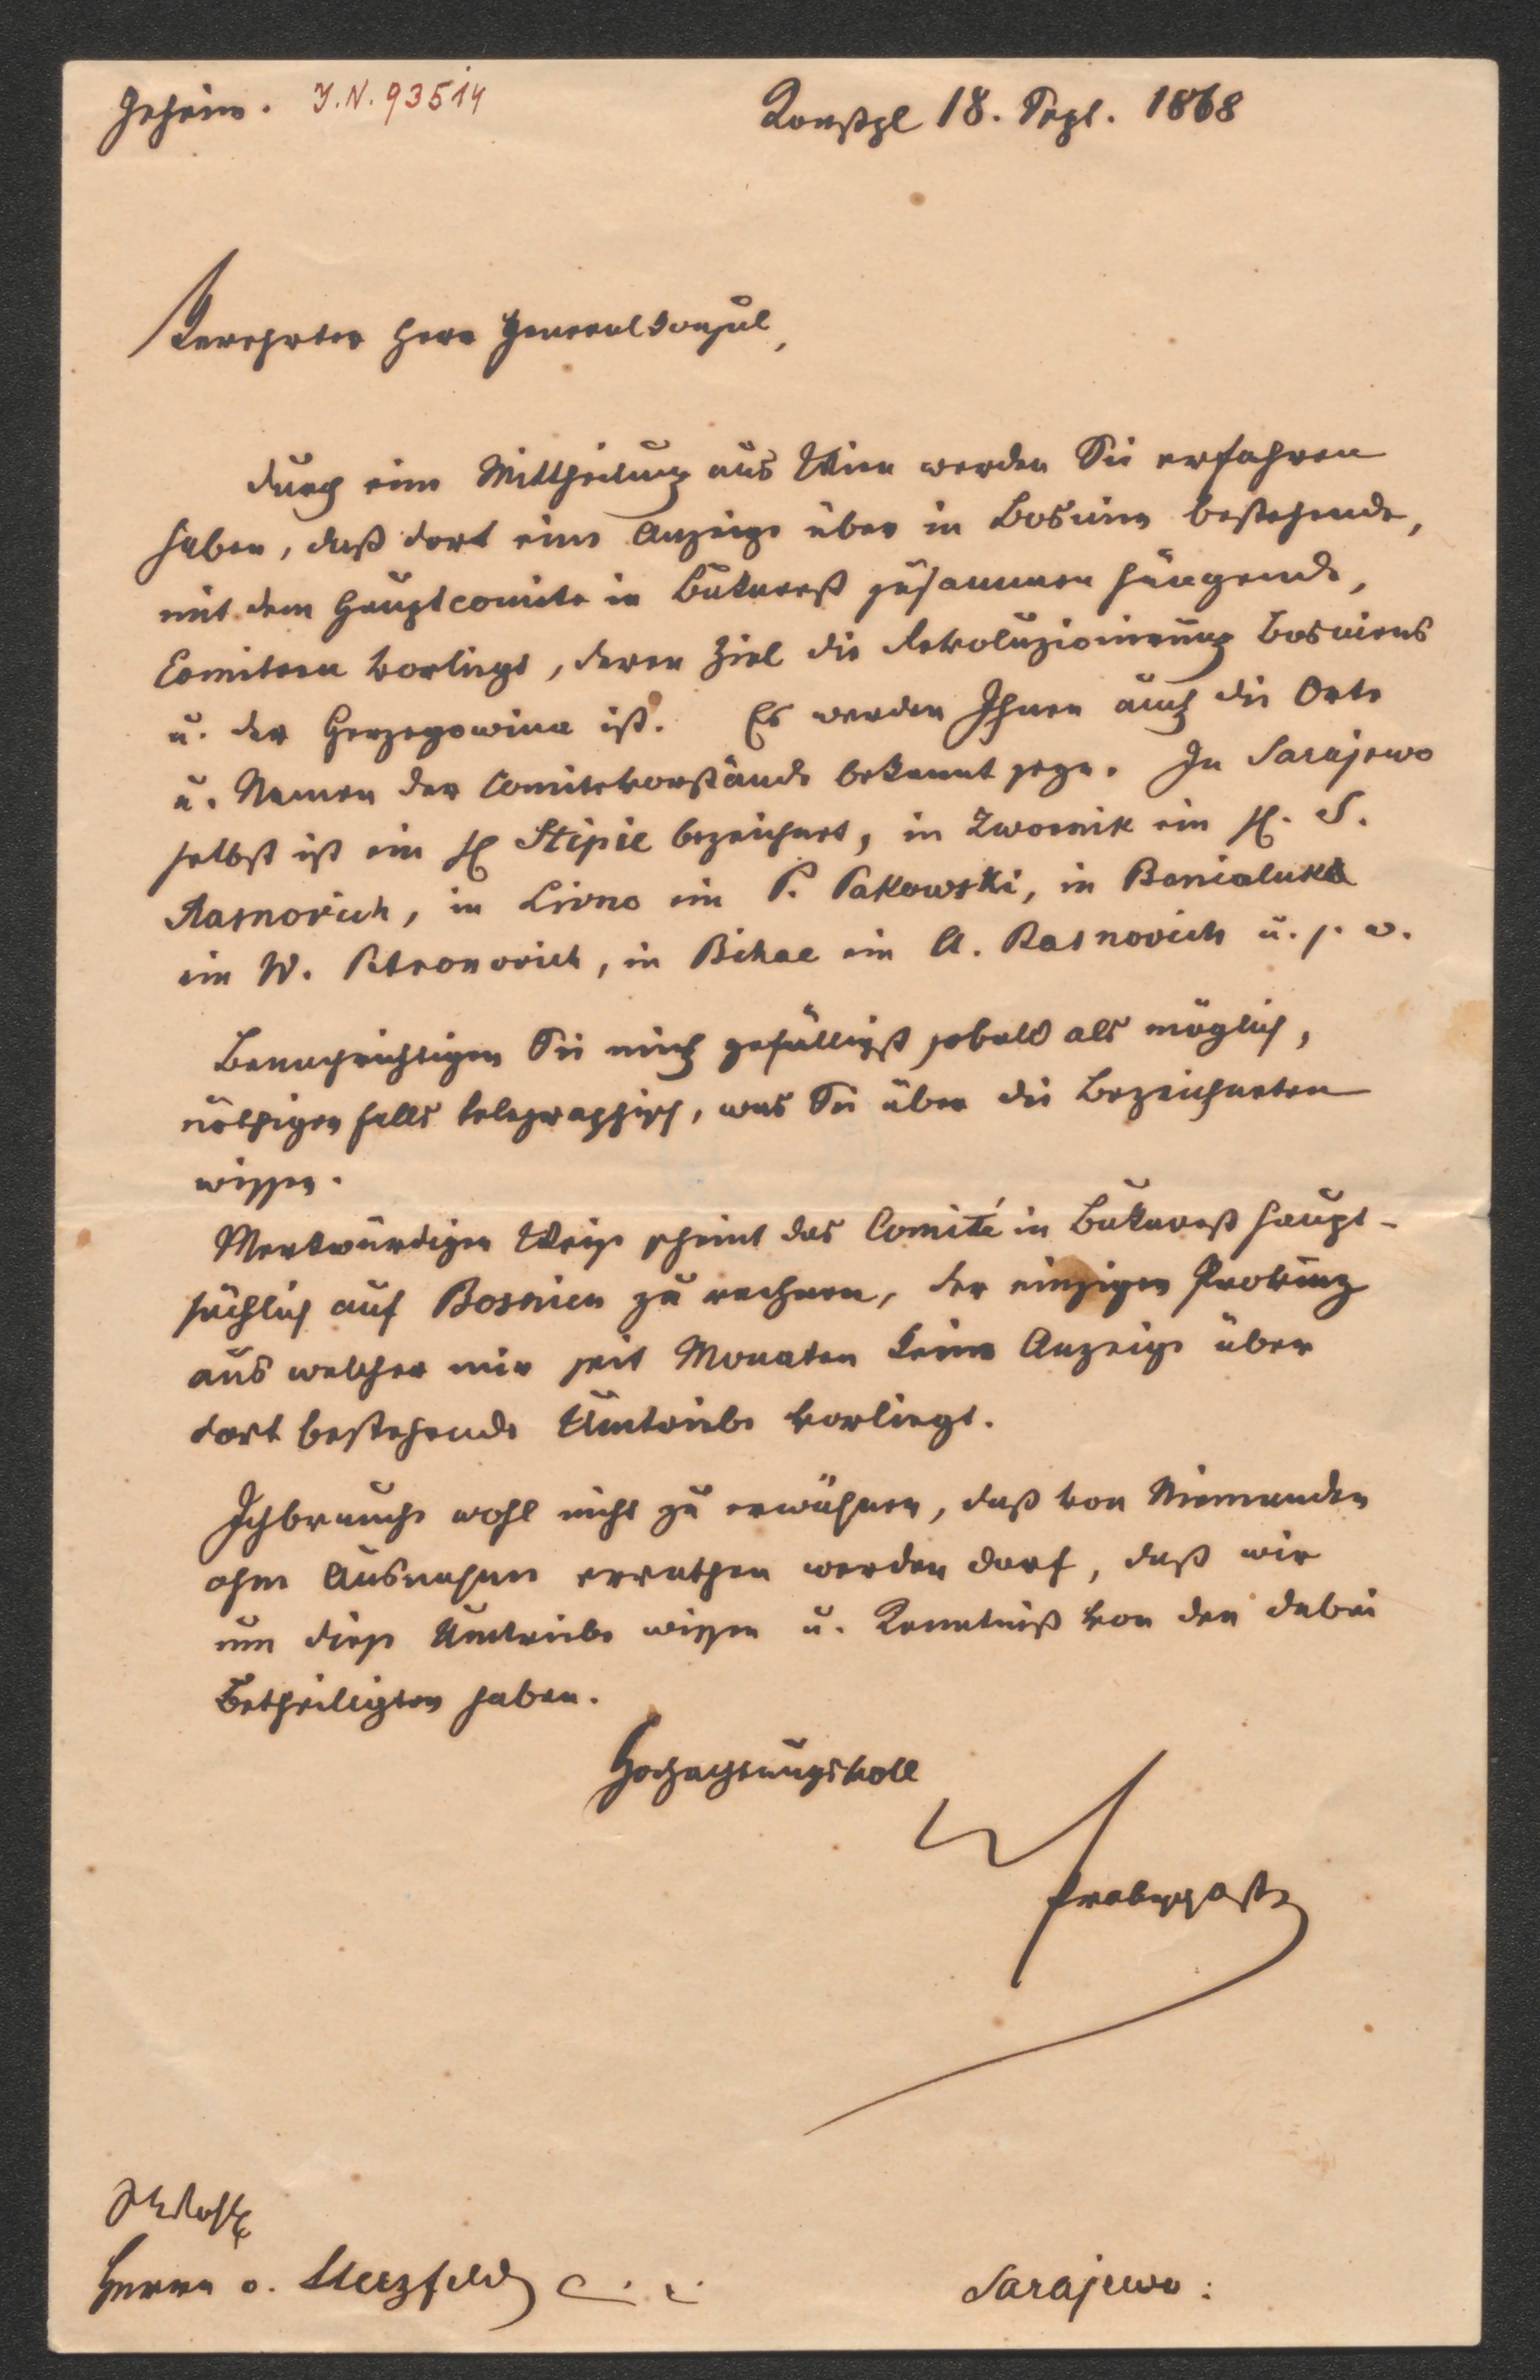 Geheim. J.N. 93514
Konstpl 18. Sept. 1868
Verehrter Herr Generalkonsul,
durch eine Mittheilung aus Wien werden Sie erfahren
haben, daß dort eine Anzeige über in Bosnien bestehende,
mit dem Hauptcomite in Bukarest zusammen hängende,
Comiteen vorliegt, deren Ziel die Revoluzionirung Bosniens
u. der Herzegowina ist. Es werden Ihnen auch die Orte
u. Namen der Comitevorstände bekannt sein. In Sarajewo
selbst ist ein H Stipic bezeichnet, in Zwornik ein H. S.
Rasnovich, in Livno ein P. Pakowski, in Banialuka
ein W. Petronovich, in Bihac ein A. Rasnovich u. s. w.
Benachrichtigen Sie mich gefälligst sobald als möglich,
nöthigen falls telegraphisch, was Sie über die Bezeichneten
wissen.
Merkwürdiger Weise scheint das Comité in Bukarest haupt-
sächlich auf Bosnien zu rechnen, der einzigen Provinz
aus welcher mir seit Monaten keine Anzeige über
dort bestehende Umtriebe vorliegt.
Ich brauche wohl nicht zu erwähnen, daß von Niemanden
ohne Ausnahme errathen werden darf, daß wir
um diese Umtriebe wissen u. Kenntniß von den dabei
Betheiligten haben.
Hochachtungsvoll
Prokesch Osten
Herrn v.
Sarajewo.